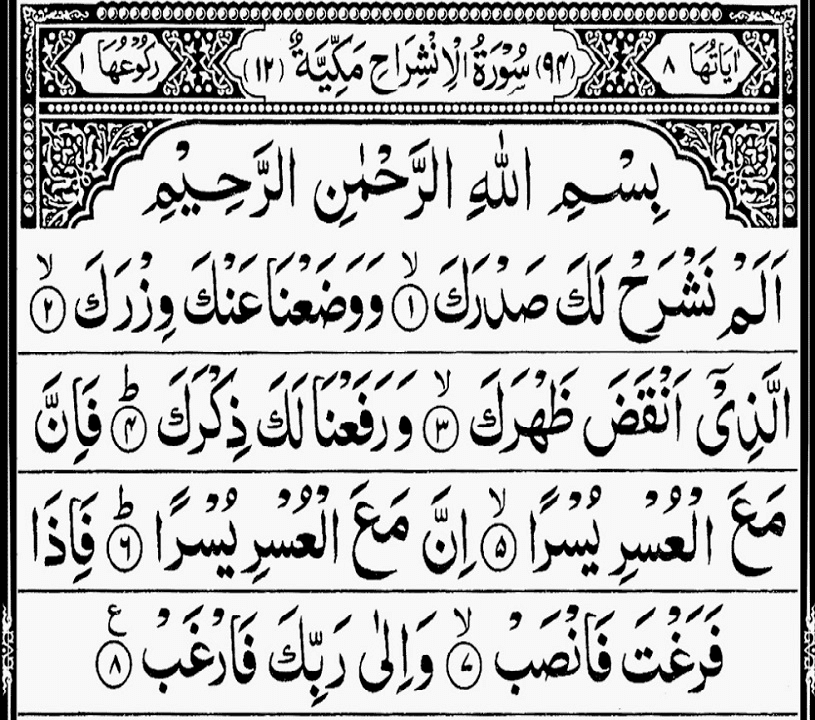 اٰيَاتُهَا ٨ (٩٤) سُوْرَةُ الْاِنْشِرَاحِ مَكِّيَّةٌ (١٢) رُكُوْعُهَا ١
بِسْمِ اللّٰهِ الرَّحْمٰنِ الرَّحِيْمِ
اَلَمْ نَشْرَحْ لَكَ صَدْرَكَ ۙ﴿١﴾ وَوَضَعْنَا عَنْكَ وِزْرَكَ ۙ﴿٢﴾
الَّذِیْۤ اَنْقَضَ ظَهْرَكَ ۙ﴿٣﴾ وَرَفَعْنَا لَكَ ذِكْرَكَ ؕ﴿٤﴾ فَاِنَّ
مَعَ الْعُسْرِ يُسْرًا ۙ﴿٥﴾ اِنَّ مَعَ الْعُسْرِ يُسْرًا ؕ﴿٦﴾ فَاِذَا
فَرَغْتَ فَانْصَبْ ۙ﴿٧﴾ وَاِلٰى رَبِّكَ فَارْغَبْ ﴿٨﴾ ع